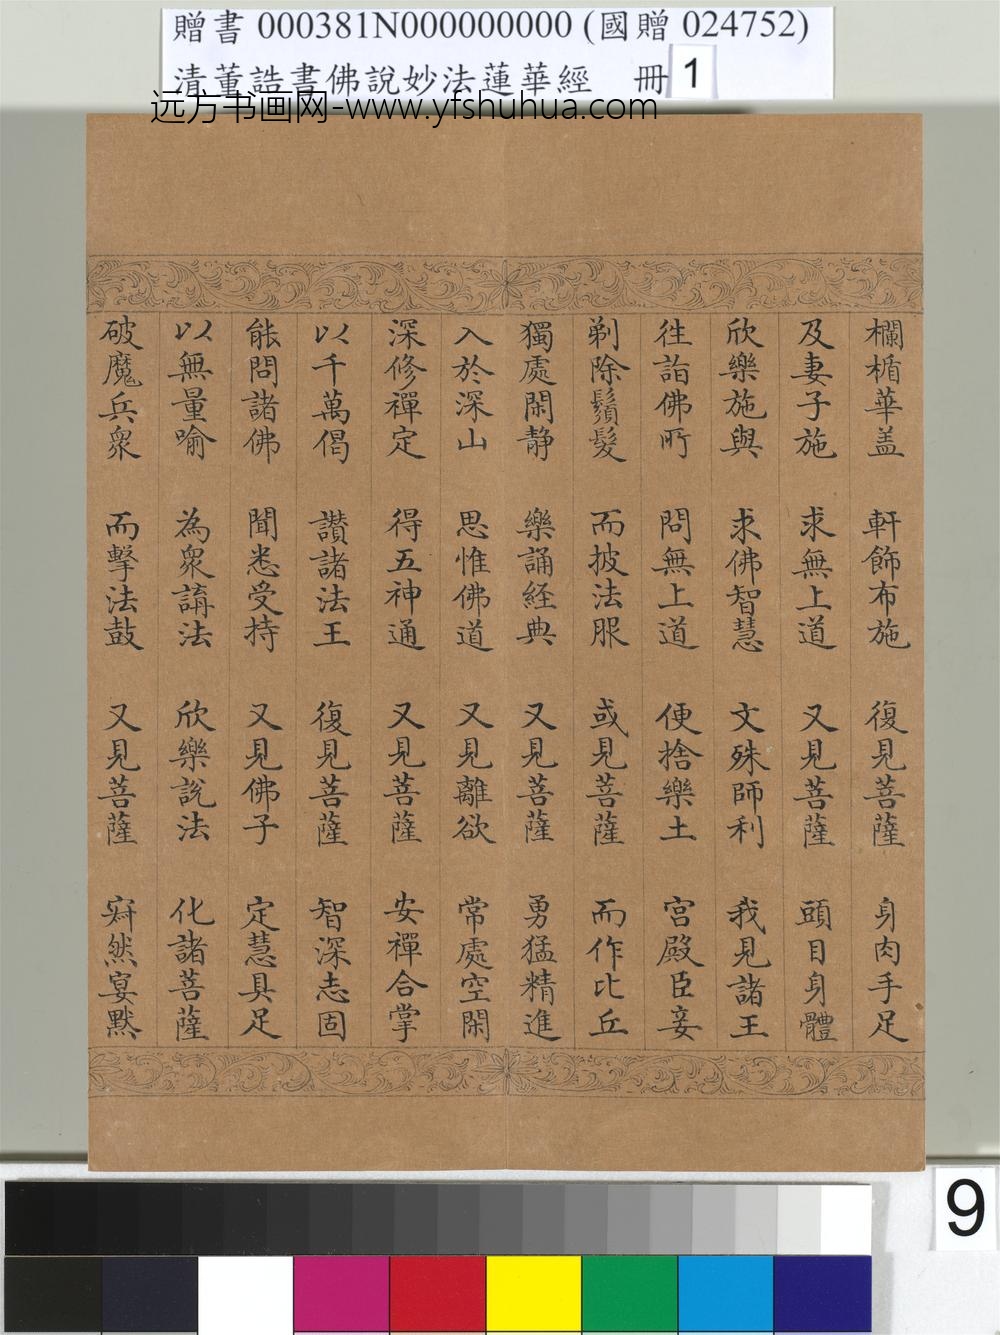 贈書 000381N000000000 (國贈 024752)
清董誥書佛說妙法蓮華經 冊 1
远方书画网-www.yfshuhua.com
欄楯華盖 軒飾布施 復見菩薩 身肉手足
及妻子施 求無上道 又見菩薩 頭目身體
欣樂施與 求佛智慧 文殊師利 我見諸王
往詣佛所 問無上道 便捨樂土 宫殿臣妾
剃除鬚髮 而披法服 或見菩薩 而作比丘
獨處閑静 樂誦經典 又見菩薩 勇猛精進
入於深山 思惟佛道 又見離欲 常處空閑
深修禪定 得五神通 又見菩薩 安禪合掌
以千萬偈 讃諸法王 復見菩薩 智深志固
能問諸佛 聞悉受持 又見佛子 定慧具足
以無量喻 為衆講法 欣樂說法 化諸菩薩
破魔兵衆 而擊法鼓 又見菩薩 寂然宴默
9